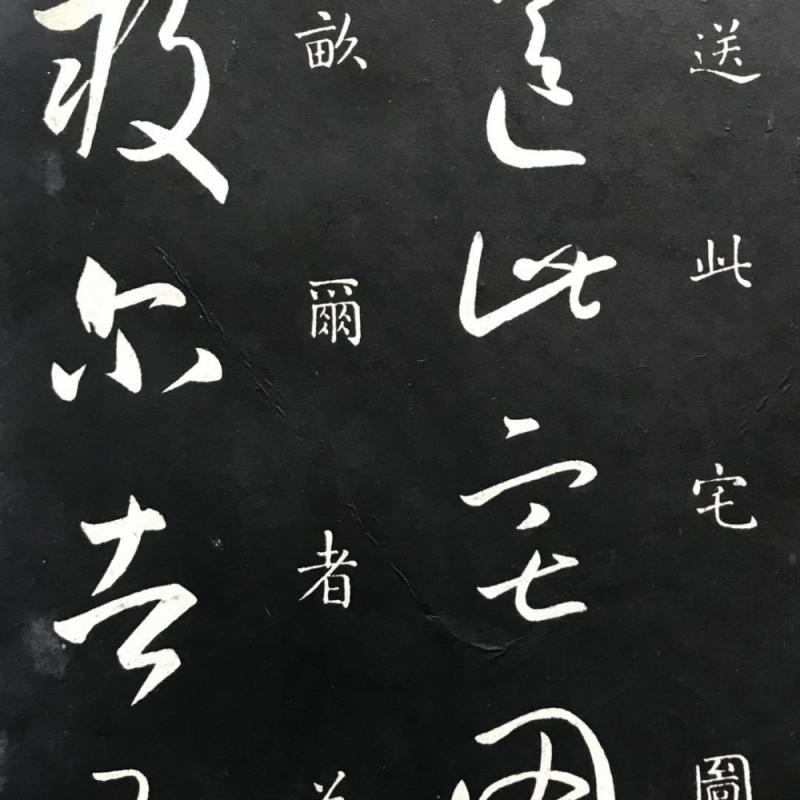 送此宅圖
送此宅圖
畝爾者
畝爾者